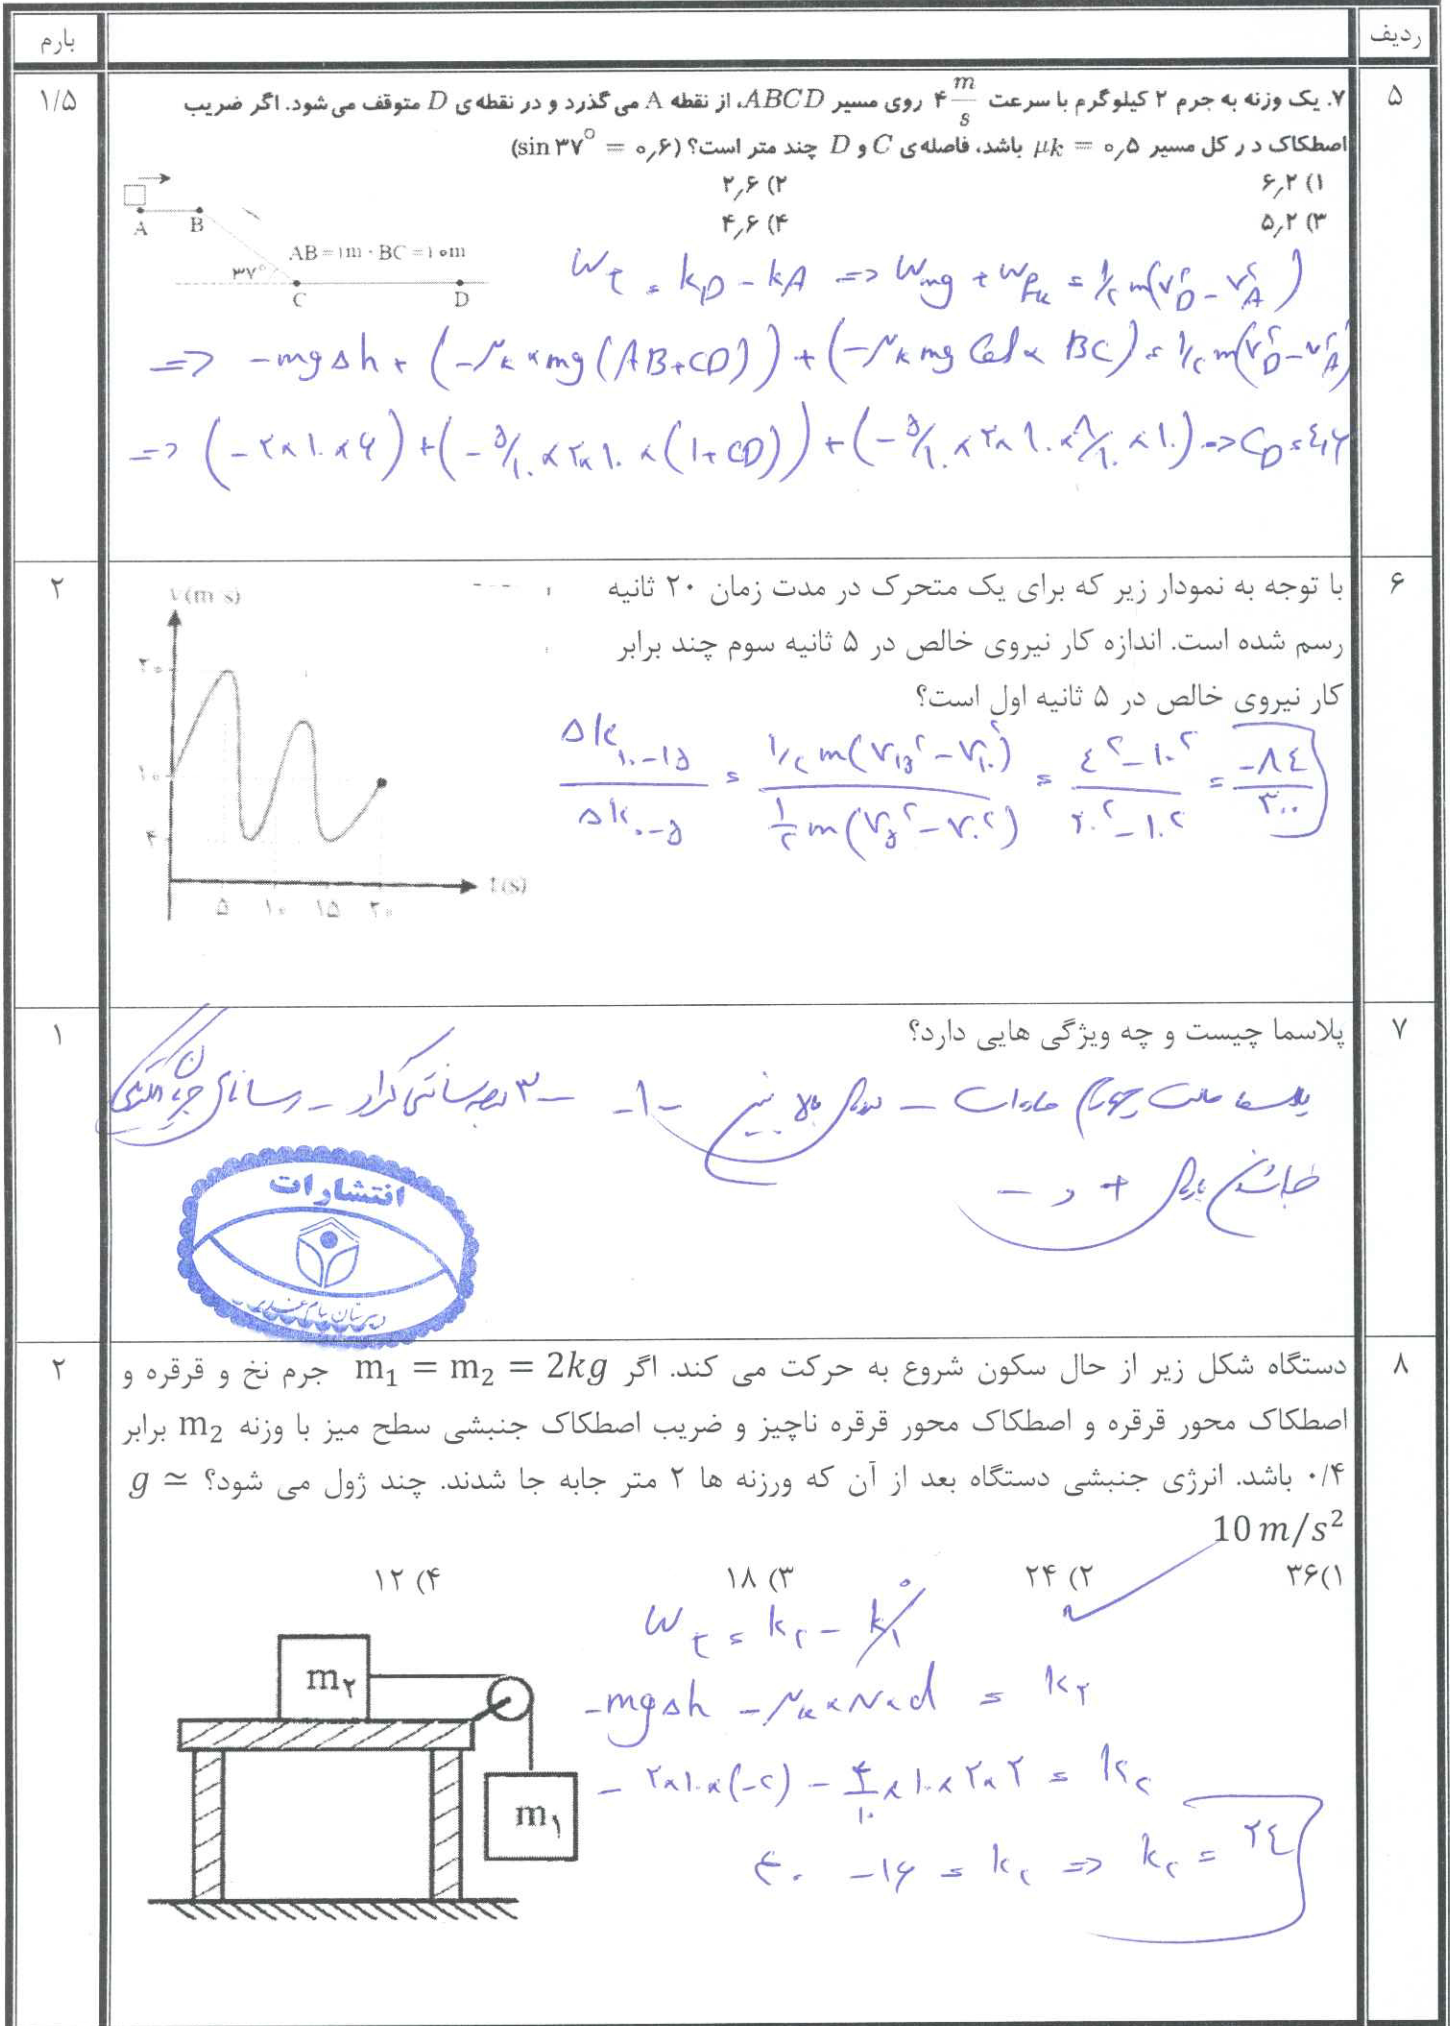 ردیف
بارم
۵
۱/۵
۷. یک وزنه به جرم ۲ کیلوگرم با سرعت ۴ m/s روی مسیر ABCD، از نقطه A می گذرد و در نقطه‌ی D متوقف می شود. اگر ضریب
اصطکاک در کل مسیر μk = ۰٫۵ باشد، فاصله‌ی C و D چند متر است؟ (sin ۳۷° = ۰٫۶)
۱) ۶٫۲
۲) ۲٫۶
۳) ۵٫۲
۴) ۴٫۶
A B
AB=۱m · BC=۱۰m
۳۷°
C D
W_t = k_D - k_A => W_mg + W_fk = ۱/۲ m(v_D^۲ - v_A^۲)
=> -mgΔh + (-μk × mg (AB+CD)) + (-μk mg Cosα BC) = ۱/۲ m(v_D^۲ - v_A^۲)
=> (-۲×۱۰×۶) + (-۵/۱۰ × ۲×۱۰ × (۱+CD)) + (-۵/۱۰ × ۲×۱۰ × ۸/۱۰ × ۱۰) => CD = ٤٫۶
۶
۲
با توجه به نمودار زیر که برای یک متحرک در مدت زمان ۲۰ ثانیه
رسم شده است. اندازه کار نیروی خالص در ۵ ثانیه سوم چند برابر
کار نیروی خالص در ۵ ثانیه اول است؟
V(m s)
۲۰
۱۰
۴
۵ ۱۰ ۱۵ ۲۰
t(s)
Δk_۱۰-۱۵ / Δk_۰-۵ = ۱/۲ m(v_۱۵^۲ - v_۱۰^۲) / ۱/۲ m(v_۵^۲ - v_۰^۲) = ٤^۲ - ۱۰^۲ / ۲۰^۲ - ۱۰^۲ = -۸٤ / ۳۰۰
۷
۱
پلاسما چیست و چه ویژگی هایی دارد؟
پلاسما حالت چهارم ماده است - دمای بالا
انتشارات
۸
۲
دستگاه شکل زیر از حال سکون شروع به حرکت می کند. اگر m₁ = m₂ = 2kg جرم نخ و قرقره و
اصطکاک محور قرقره و اصطکاک محور قرقره ناچیز و ضریب اصطکاک جنبشی سطح میز با وزنه m₂ برابر
۰/۴ باشد. انرژی جنبشی دستگاه بعد از آن که ورزنه ها ۲ متر جابه جا شدند. چند ژول می شود؟ g ≃
10 m/s²
۱) ۳۶
۲) ۲۴
۳) ۱۸
۴) ۱۲
m۲
m۱
W_t = k_۲ - k_۱ ۰
-mgΔh - μk × N × d = k_۲
- ۲×۱۰×(-۲) - ۴/۱۰ × ۱۰×۲×۲ = k_۲
۴۰ - ۱۶ = k_۲ => k_۲ = ۲٤